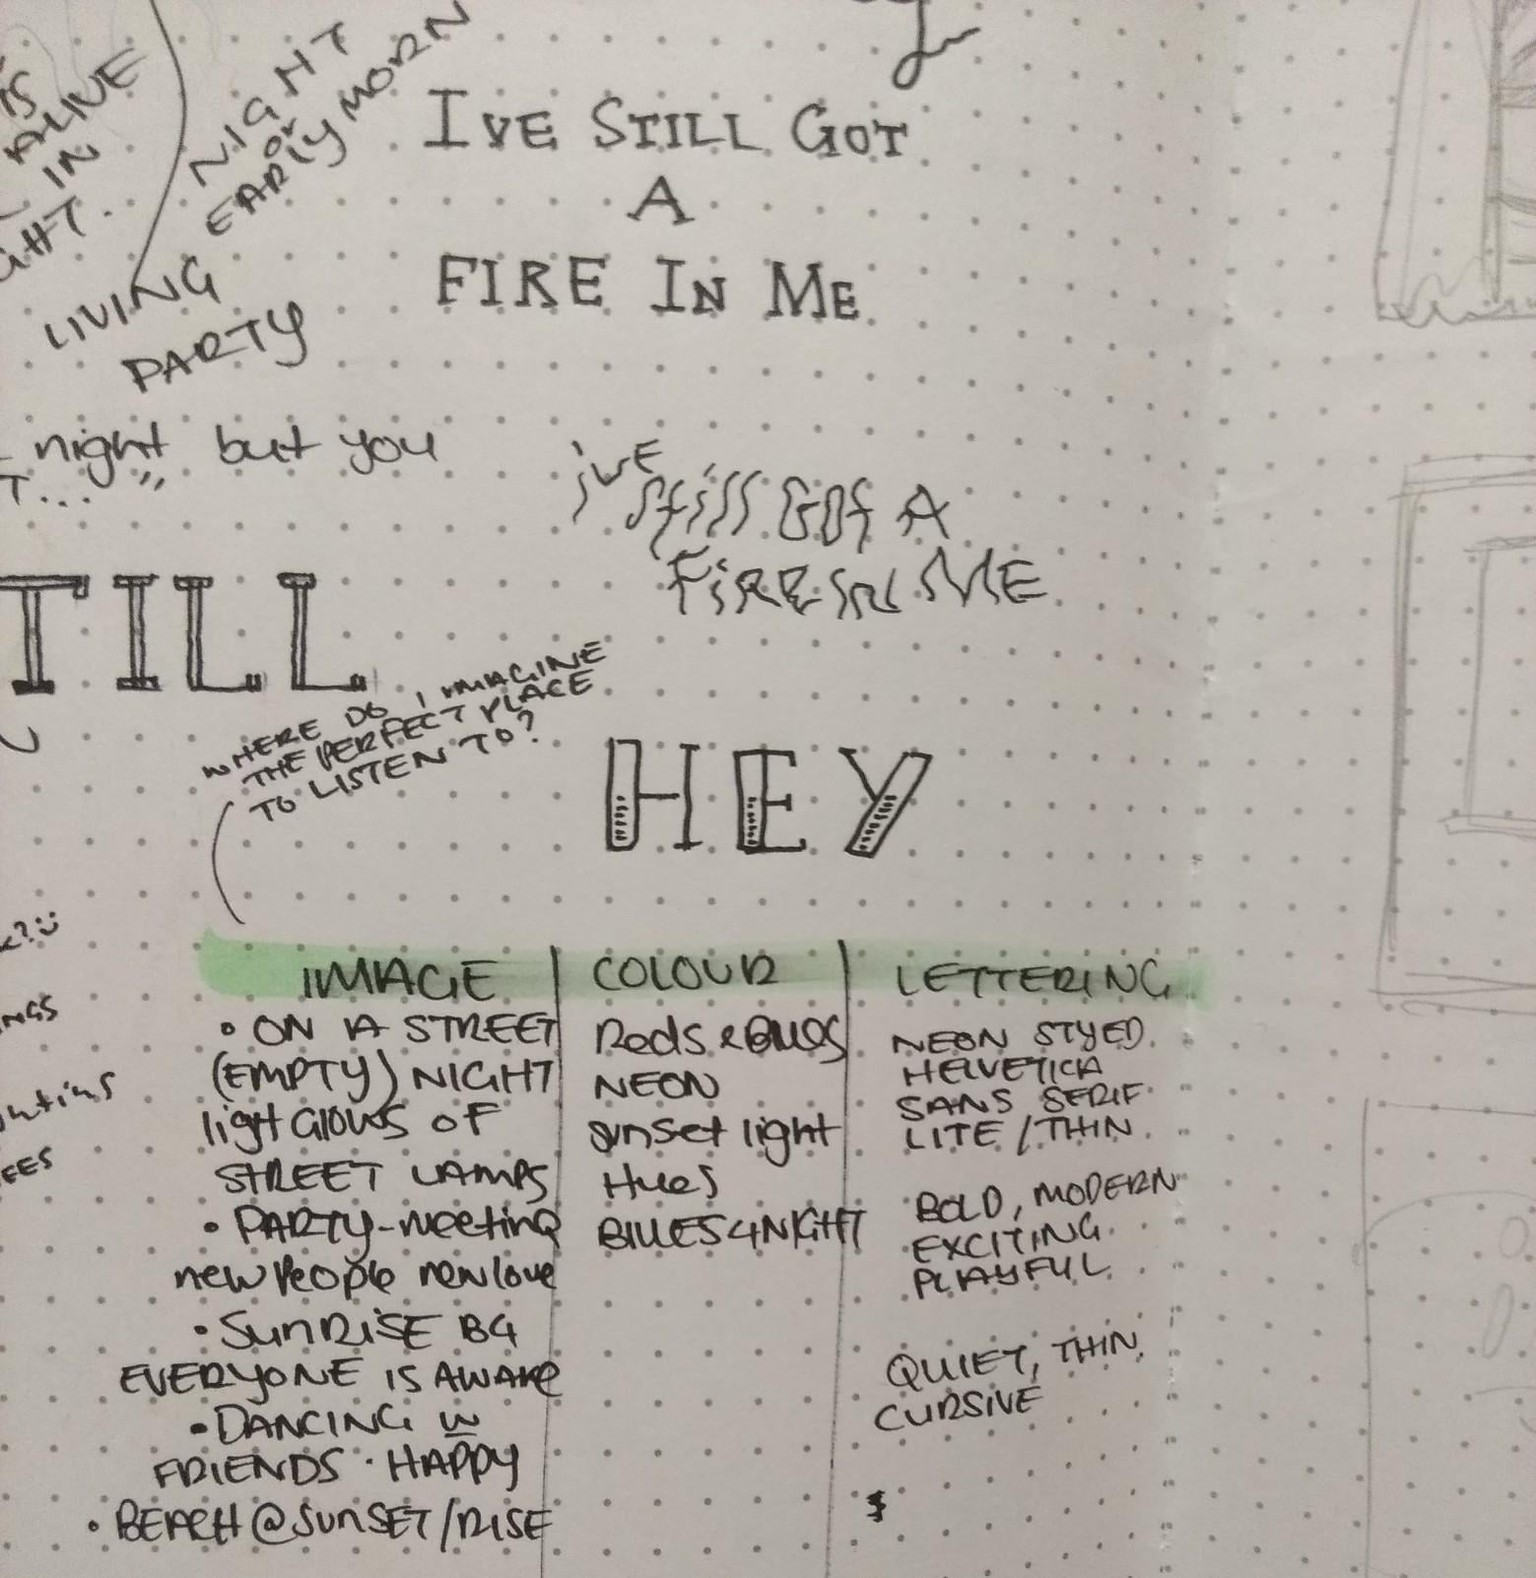 IS
ALIVE
IN
NIGHT
OR
EARLY MORN
LIVING
PARTY
IVE STILL GOT
A
FIRE IN ME
night" but you
T...
iVE
Still GOt A
FiRE IN ME
TILL
WHERE DO I IMAGINE
THE PERFECT PLACE
TO LISTEN TO?
HEY
IMAGE COLOUR LETTERING
• ON A STREET
(EMPTY) NIGHT
light Glows OF
STREET LAMPS
• PARTY-meeting
new People new love
• SunRiSE BG
EVERYONE IS AWAKe
• DANCING W
FRIENDS • HAPPY
• BEACH @ SunSET/RISE
Reds & Blues
NEON
sunset light
Hues
BLUES 4 NIGHT
NEON STYED
HELVETICA
SANS SERIF
LITE / THIN
BOLD, MODERN
EXCITING
PLAYFUL
QUIET, THIN
CURSIVE